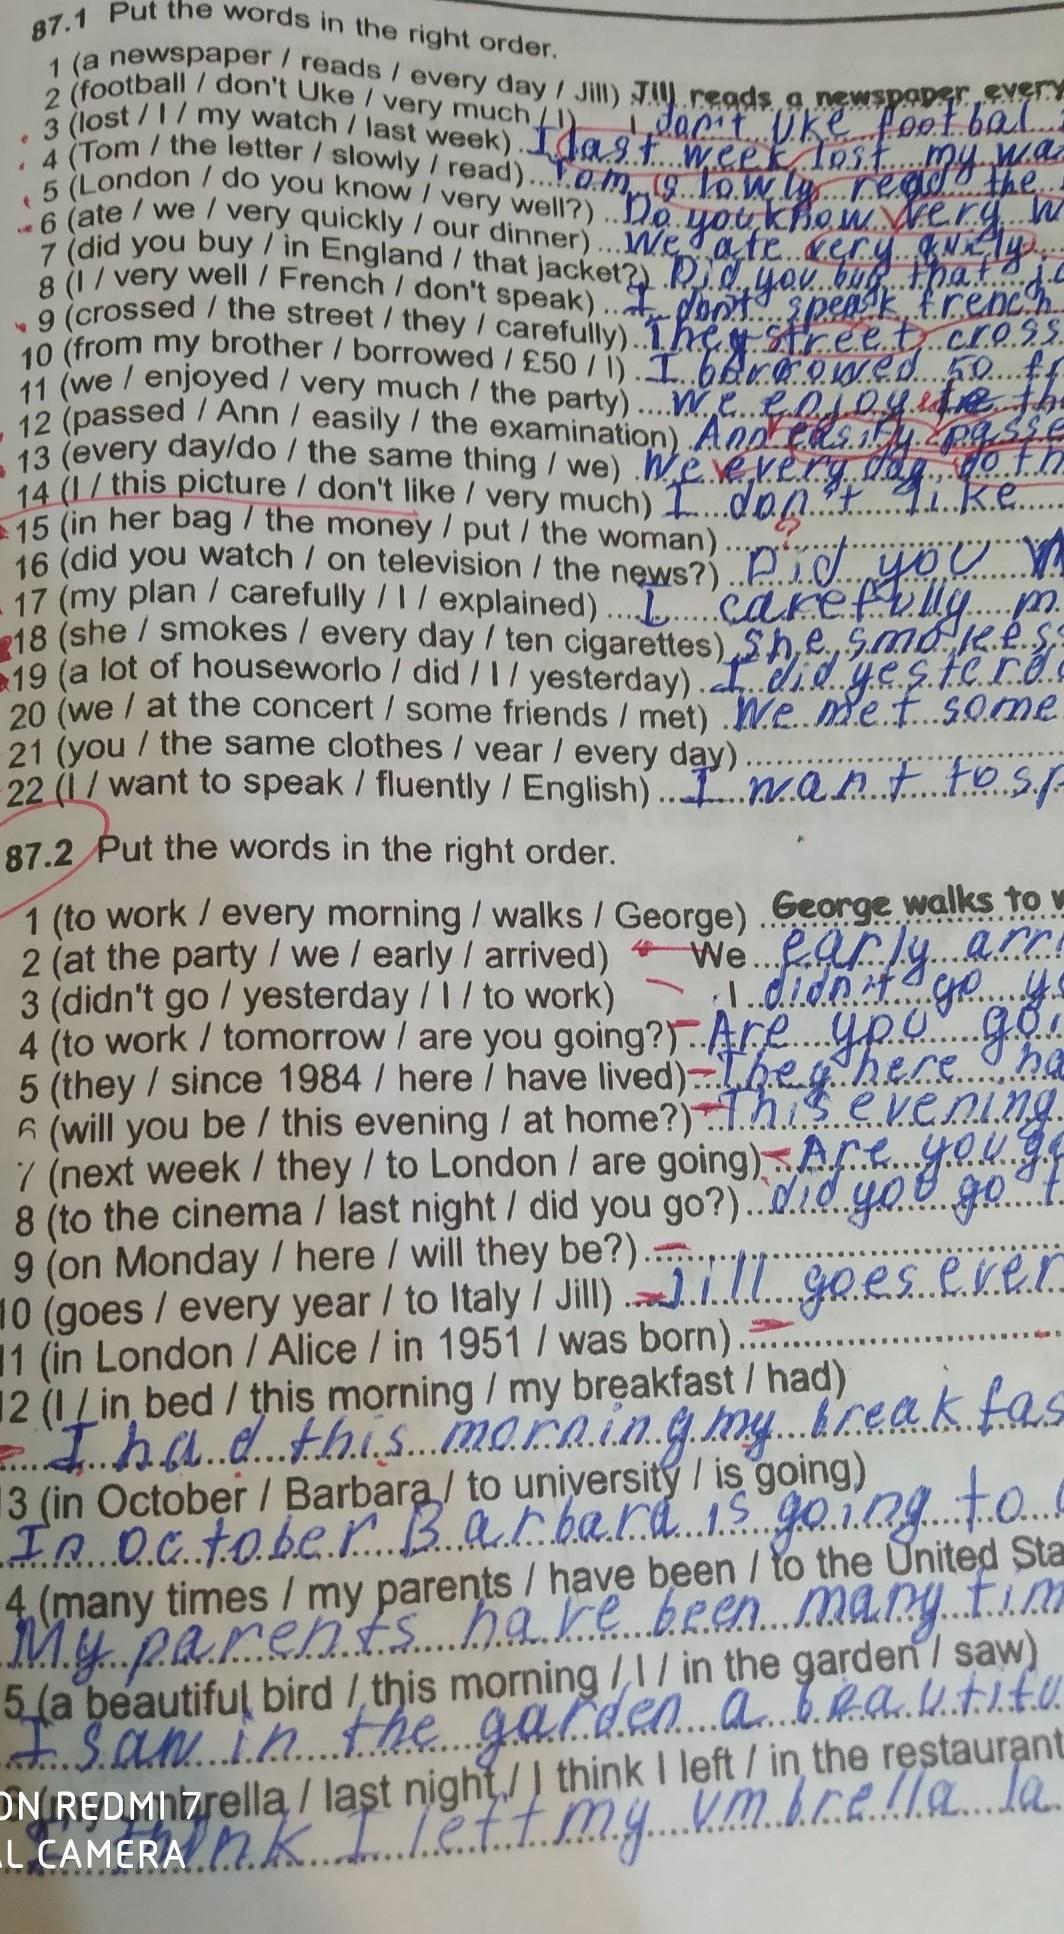 87.1 Put the words in the right order.
1 (a newspaper / reads / every day / Jill) Jill reads a newspaper every
2 (football / don't Uke / very much / I) I don't like footbal
3 (lost / I / my watch / last week) I last week lost my wa
4 (Tom / the letter / slowly / read) Tom slowly read the
5 (London / do you know / very well?) Do you know very w
6 (ate / we / very quickly / our dinner) We ate very quikly
7 (did you buy / in England / that jacket?) Did you buy that ja
8 (I / very well / French / don't speak) I don't speak french
9 (crossed / the street / they / carefully) They street cross
10 (from my brother / borrowed / £50 / I) I borrowed 50 f
11 (we / enjoyed / very much / the party) We enjoy the
12 (passed / Ann / easily / the examination) Ann easily passe
13 (every day/do / the same thing / we) We every day do th
14 (I / this picture / don't like / very much) I don't like
15 (in her bag / the money / put / the woman) ?
16 (did you watch / on television / the news?) Did you w
17 (my plan / carefully / I / explained) I carefully m
18 (she / smokes / every day / ten cigarettes) She smokees
19 (a lot of houseworlo / did / I / yesterday) I did yesterd
20 (we / at the concert / some friends / met) We met some
21 (you / the same clothes / vear / every day)
22 (I / want to speak / fluently / English) I want to sp
87.2 Put the words in the right order.
1 (to work / every morning / walks / George) George walks to w
2 (at the party / we / early / arrived) We early arri
3 (didn't go / yesterday / I / to work) I didn't go ye
4 (to work / tomorrow / are you going?) Are you goi
5 (they / since 1984 / here / have lived) They here ha
6 (will you be / this evening / at home?) This evening
7 (next week / they / to London / are going) Are you go
8 (to the cinema / last night / did you go?) did you go t
9 (on Monday / here / will they be?)
10 (goes / every year / to Italy / Jill) Jill goes ever
11 (in London / Alice / in 1951 / was born)
12 (I / in bed / this morning / my breakfast / had)
I had this morning my breakfas
13 (in October / Barbara / to university / is going)
In October Barbara is going to
4 (many times / my parents / have been / to the United Sta
My parents have been many tim
5 (a beautiful bird / this morning / I / in the garden / saw)
I saw in the garden a beautifu
umbrella / last night / I think I left / in the restaurant
I think I left my umbrella la
ON REDMI 7
AL CAMERA